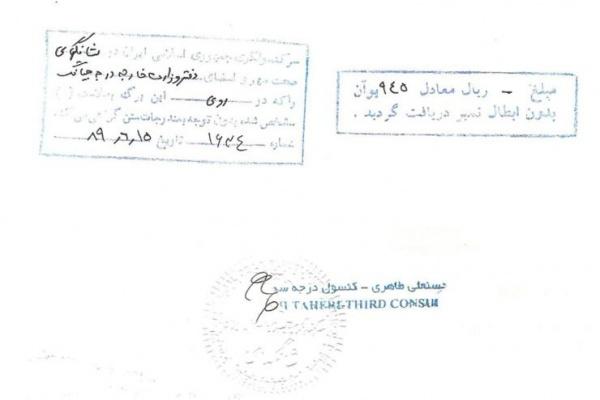 سرکنسولگری جمهوری اسلامی ایران در شانگهای
صحت مهر و امضای دفتر وزارت خارجه در جیانگ
را که در روی این برگ بعلامت ( )
مشخص شده بدون توجه بمندرجات متن گواهی می کند.
شماره ۱۶۳۴ تاریخ ۸۹,۶,۱۵
مبلغ - ریال معادل ۹۴۵ یوآن
بدون ابطال تمبر دریافت گردید .
طاهری - کنسول درجه سو
TAHERI-THIRD CONSUL